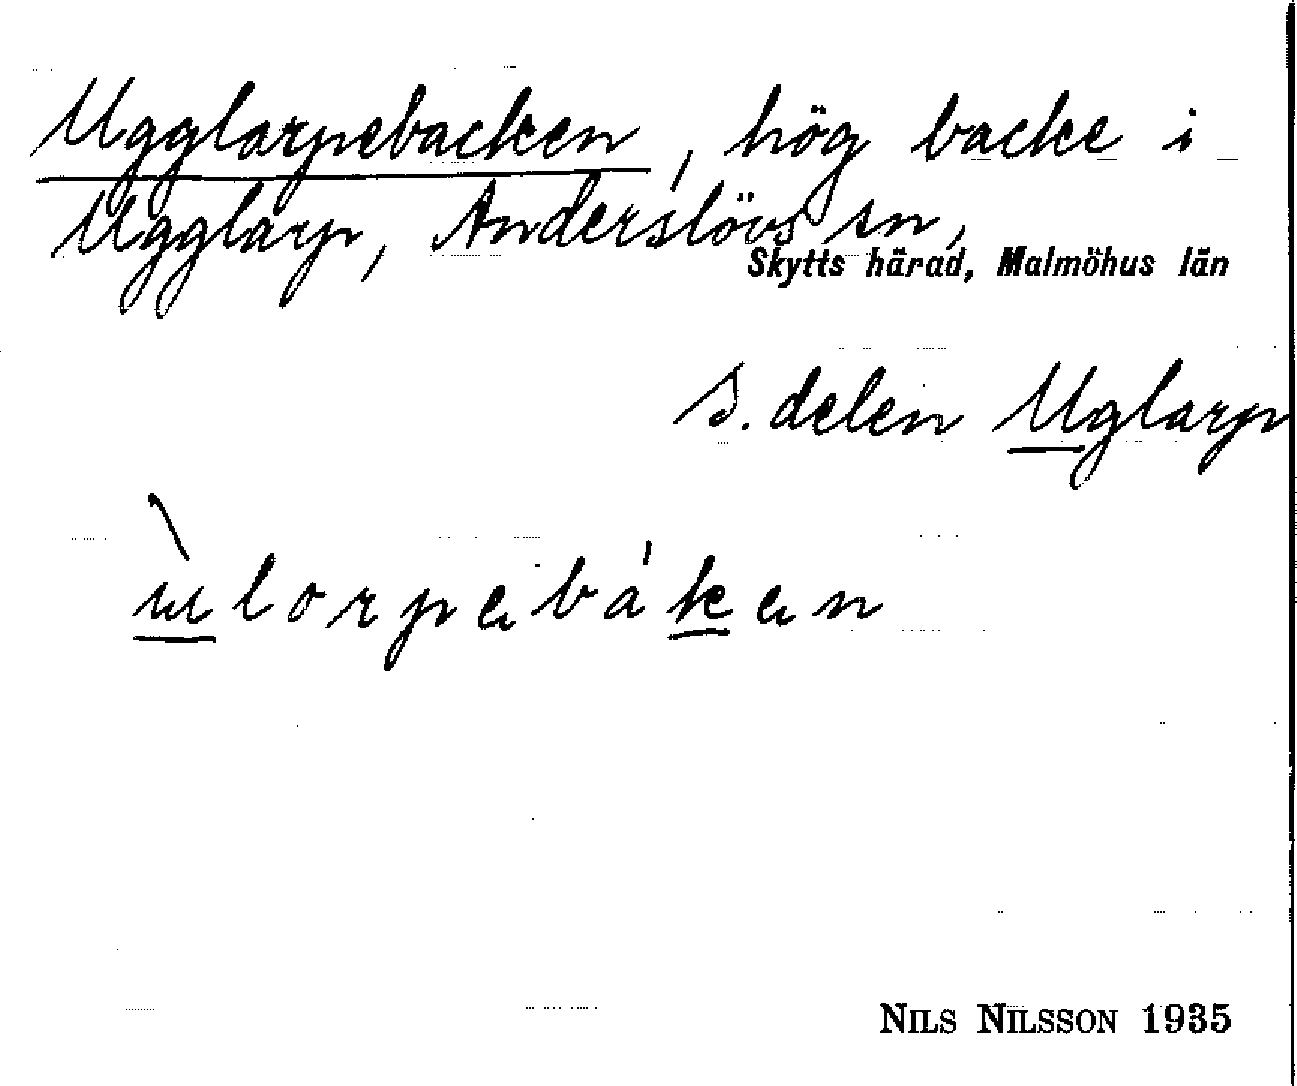 Ugglarpebacken, hög backe i
Ugglarp, Anderslövs sn,
Skytts härad, Malmöhus län
S. delen Uglarp
NILS NILSSON 1935